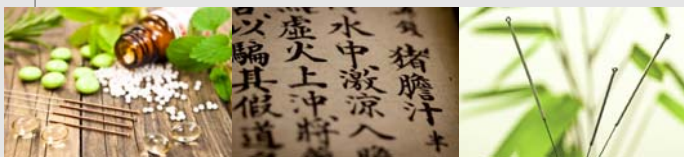 猪膽汁半
水中激涼入
虛火上沖將
以騙其假道